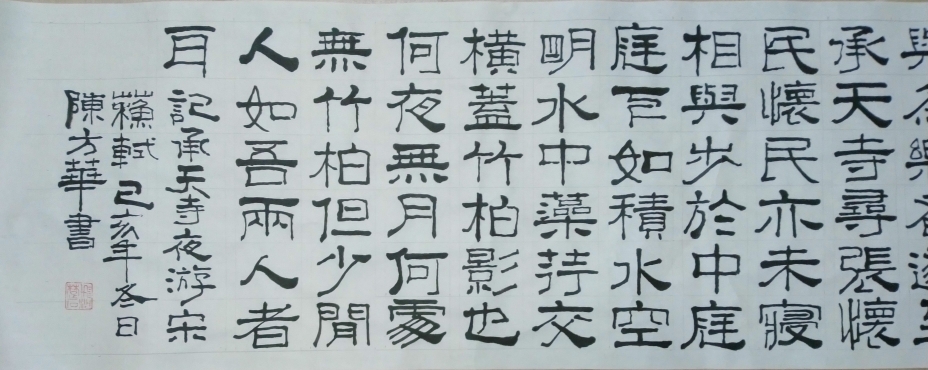 與為樂者遂至
承天寺尋張懷
民懷民亦未寢
相與步於中庭
庭下如積水空
明水中藻荇交
橫蓋竹柏影也
何夜無月何處
無竹柏但少閒
人如吾兩人者
耳
記承天寺夜游宋
蘇軾己亥年冬日
陳方華書